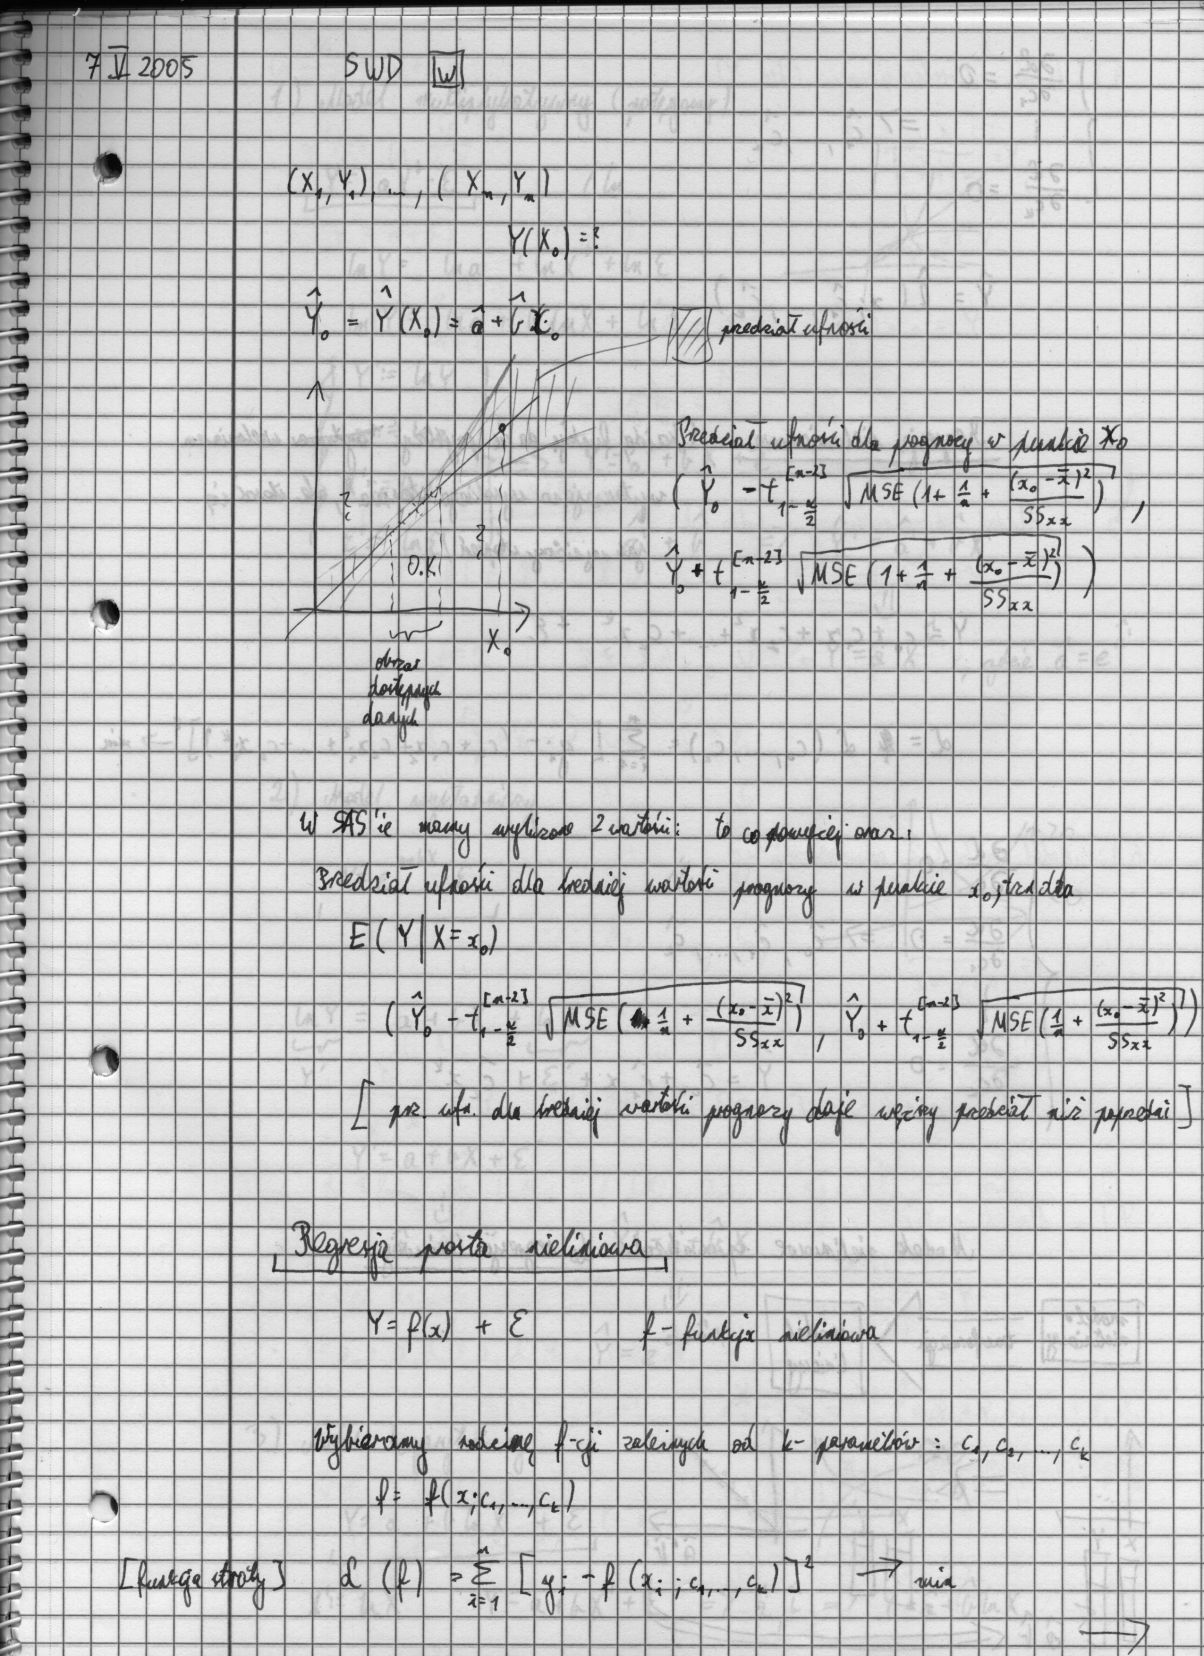 7 V 2005 SWD [W]
(X₁, Y₁), ..., (Xₙ, Yₙ)
Y(X₀) = ?
Ŷ₀ = Ŷ(X₀) = â + b̂X₀
przedział ufności
Przedział ufności dla prognozy w punkcie X₀
(Ŷ₀ - t_{1-α/2}^{[n-2]} √(MSE (1 + 1/n + (x₀ - x̄)²/SSₓₓ)) ,
Ŷ₀ + t_{1-α/2}^{[n-2]} √(MSE (1 + 1/n + (x₀ - x̄)²/SSₓₓ)) )
?
?
O.K.
X₀
obszar
dostępnych
danych
W SAS'ie mamy wyliczone 2 wartości: to co powyżej oraz:
Przedział ufności dla średniej wartości prognozy w punkcie x₀, tzn dla
E(Y | X = x₀)
(Ŷ₀ - t_{1-α/2}^{[n-2]} √(MSE (1/n + (x₀ - x̄)²/SSₓₓ)) , Ŷ₀ + t_{1-α/2}^{[n-2]} √(MSE (1/n + (x₀ - x̄)²/SSₓₓ)) )
[ prz. ufn. dla średniej wartości prognozy daje węższy przedział niż poprzedni ]
Regresja prosta nieliniowa
Y = f(x) + ε f - funkcja nieliniowa
Wybieramy rodzinę f-cji zależnych od k- parametrów : c₁, c₂, ..., cₖ
f = f(x; c₁, ..., cₖ)
[funkcja straty] L (f) = Σ_{i=1}^{n} [ yᵢ - f (xᵢ ; c₁, ..., cₖ) ]² → min
→